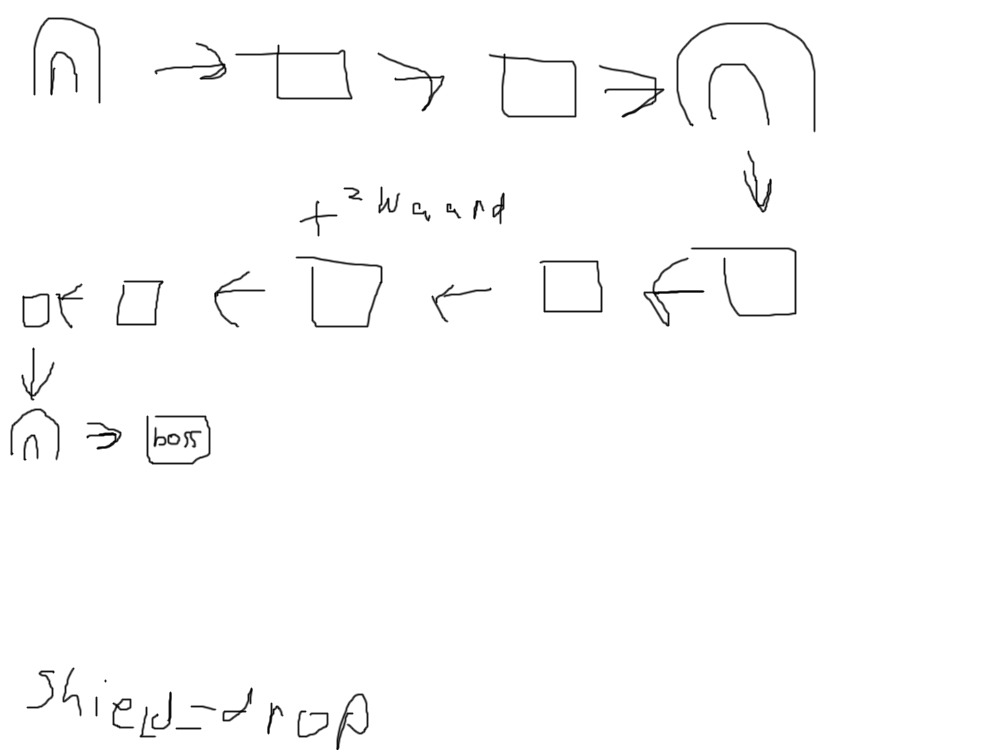 + 2 Waard
boss
shield=drop